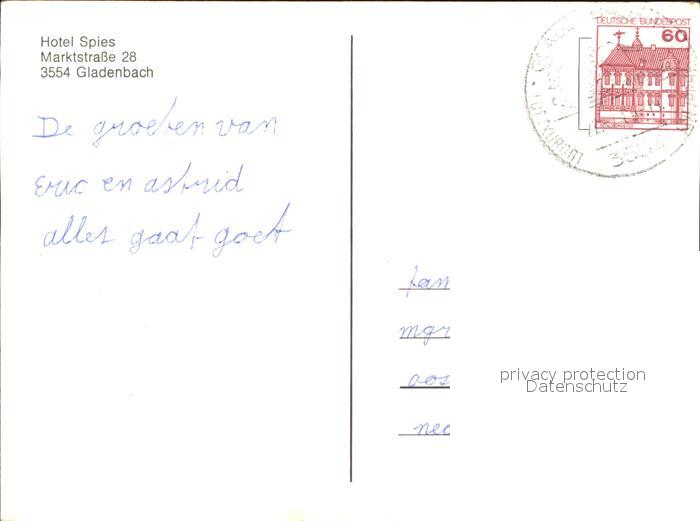 Hotel Spies
Marktstraße 28
3554 Gladenbach
De groeten van
Eric en astrid
alles gaat goet
DEUTSCHE BUNDESPOST
60
3554
fam
mgr
oos
ned
privacy protection
Datenschutz